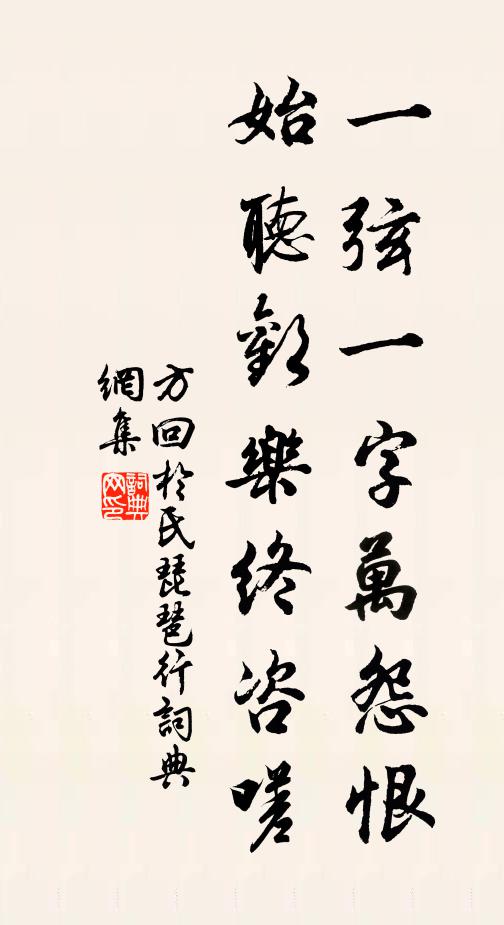 一弦一字萬怨恨
始聽歡樂終咨嗟
方回於氏琵琶行詞典
網集
詞典
网印